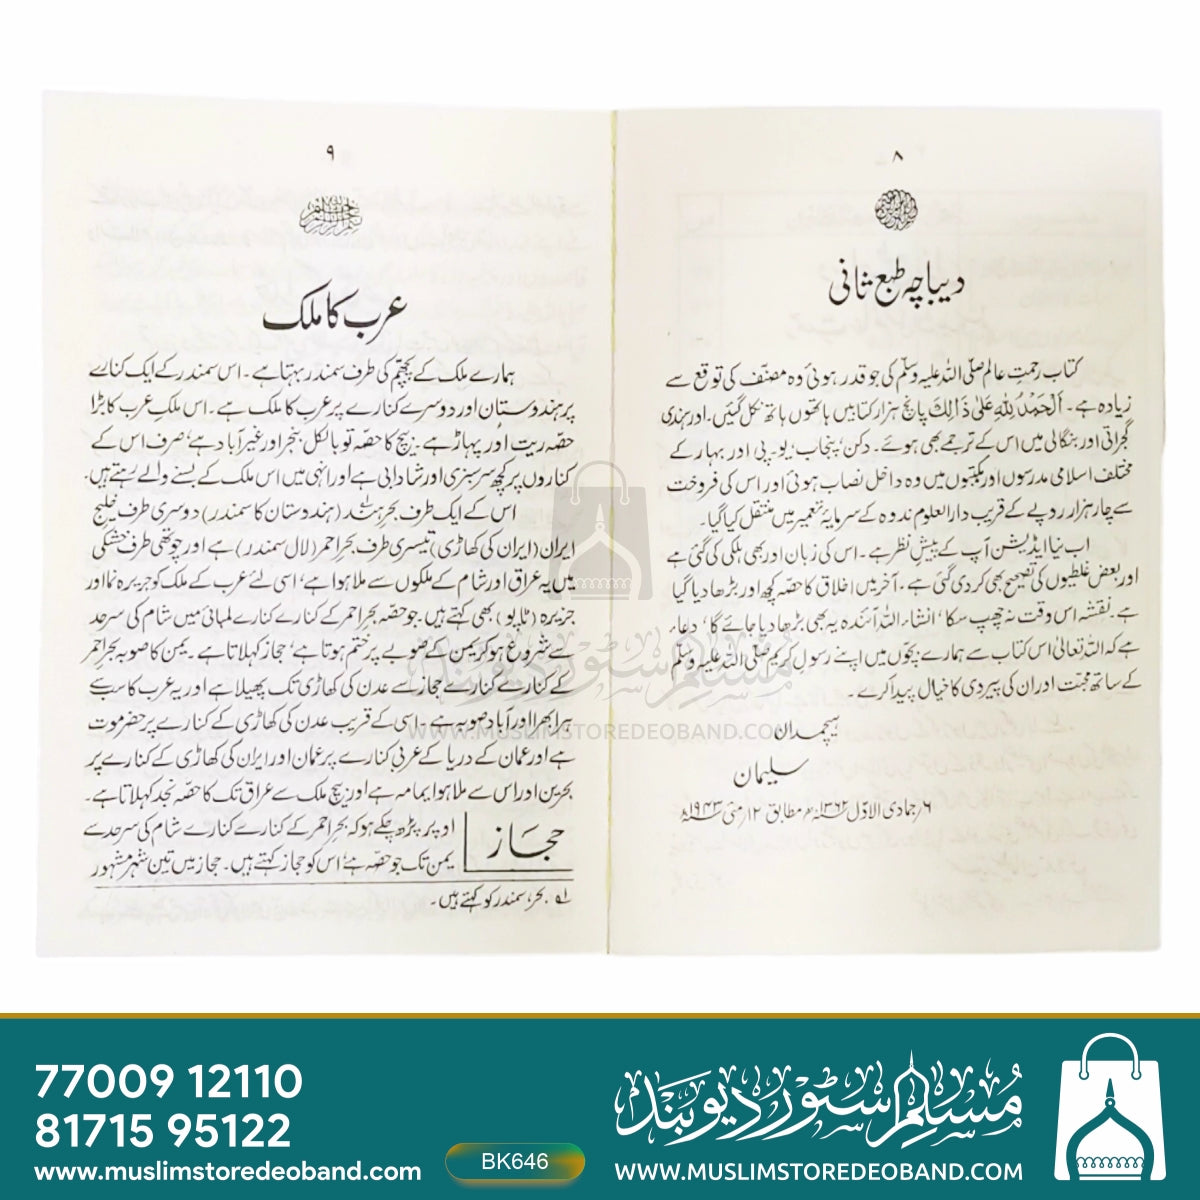 ۸
دیباچہ طبع ثانی
کتاب رحمتِ عالم صلّی اللہ علیہ وسلّم کی جو قدر ہوئی وہ مصنّف کی توقع سے
زیادہ ہے۔ اَلْحَمْدُ لِلّٰہِ عَلیٰ ذَالِکَ پانچ ہزار کتابیں ہاتھوں ہاتھ نکل گئیں۔ اور ہندی
گجراتی اور بنگالی میں اس کے ترجمے بھی ہوئے۔ دکن، پنجاب، یو۔پی اور بہار کے
مختلف اسلامی مدرسوں اور مکتبوں میں وہ داخل نصاب ہوئی اور اس کی فروخت
سے چار ہزار روپے کے قریب دارالعلوم ندوہ کے سرمایۂ تعمیر میں منتقل کیا گیا۔
اب نیا ایڈیشن آپ کے پیشِ نظر ہے۔ اس کی زبان اور بھی ہلکی کی گئی ہے
اور بعض غلطیوں کی تصحیح بھی کردی گئی ہے۔ آخر میں اخلاق کا حصّہ کچھ اور بڑھا دیا گیا
ہے۔ نقشہ اس وقت نہ چھپ سکا، انشاء اللہ آئندہ یہ بھی بڑھا دیا جائے گا، دعا۔
ہے کہ اللہ تعالیٰ اس کتاب سے ہمارے بچّوں میں اپنے رسول کریم صلّی اللہ علیہ وسلّم
کے ساتھ محبّت اور ان کی پیروی کا خیال پیدا کرے۔
ہیچمدان
سلیمان
۶ر جمادی الاوّل ۱۳۶۲ھ مطابق ۱۲ر مئی ۱۹۴۳ء
۹
عرب کا ملک
ہمارے ملک کے پچھّم کی طرف سمندر بہتا ہے۔ اس سمندر کے ایک کنارے
پر ہندوستان اور دوسرے کنارے پر عرب کا ملک ہے۔ اس ملکِ عرب کا بڑا
حصّہ ریت اور پہاڑ ہے۔ بیچ کا حصّہ تو بالکل بنجر اور غیر آباد ہے، صرف اس کے
کناروں پر کچھ سرسبزی اور شادابی ہے اور انہی میں اس ملک کے بسنے والے رہتے ہیں۔
اس کے ایک طرف بحرِ ہند (ہندوستان کا سمندر) دوسری طرف خلیج
ایران (ایران کی کھاڑی) تیسری طرف بحرِ احمر (لال سمندر) ہے اور چوتھی طرف خشکی
میں یہ عراق اور شام کے ملکوں سے ملا ہوا ہے، اسی لئے عرب کے ملک کو جزیرہ نما اور
جزیرہ (ٹاپو) بھی کہتے ہیں۔ جو حصّہ بحرِ احمر کے کنارے کنارے لمبائی میں شام کی سرحد
سے شروع ہو کر یمن کے صوبے پر ختم ہوتا ہے، حجاز کہلاتا ہے۔ یمن کا صوبہ بحرِ احمر
کے کنارے کنارے حجاز سے عدن کی کھاڑی تک پھیلا ہے اور یہ عرب کا سب سے
ہرا بھرا اور آباد صوبہ ہے۔ اسی کے قریب عدن کی کھاڑی کے کنارے پر حضرموت
ہے اور عمان کے دریا کے عربی کنارے پر عمان اور ایران کی کھاڑی کے کنارے پر
بحرین اور اس سے ملا ہوا یمامہ ہے اور بیچ ملک سے عراق تک کا حصّہ نجد کہلاتا ہے۔
حجاز
اوپر پڑھ چکے ہو کہ بحرِ احمر کے کنارے کنارے شام کی سرحد سے
یمن تک جو حصّہ ہے، اس کو حجاز کہتے ہیں۔ حجاز میں تین شہر مشہور
لہ بحر، سمندر کو کہتے ہیں۔
مسلم سٹور دیوبند
WWW.MUSLIMSTOREDEOBAND.COM
77009 12110
81715 95122
www.muslimstoredeoband.com
BK646
مسلم سٹور دیوبند
WWW.MUSLIMSTOREDEOBAND.COM